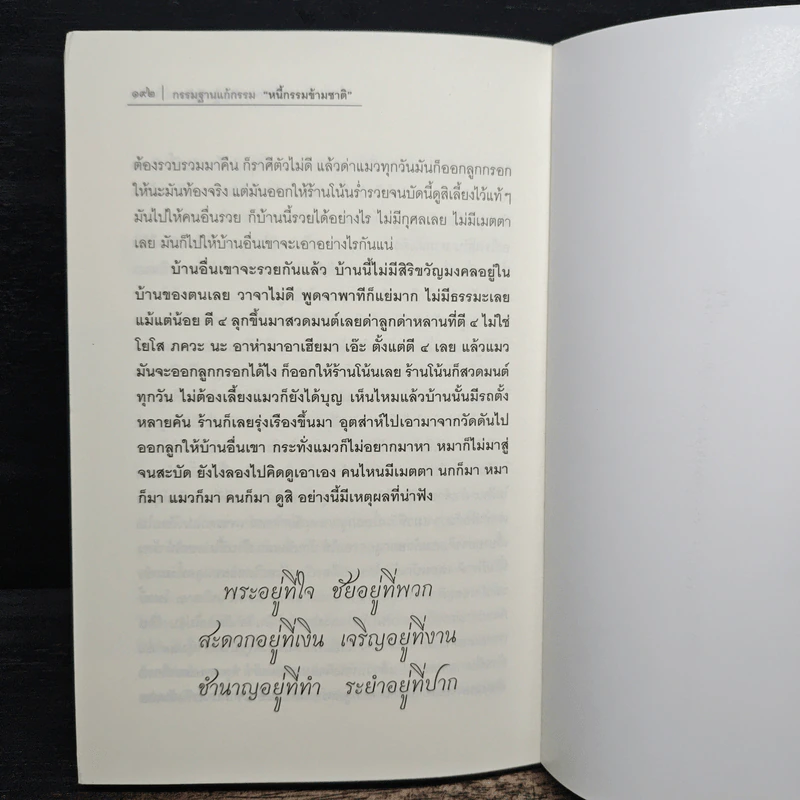 ๑๙๒ | กรรมฐานแก้กรรม "หนี้กรรมข้ามชาติ"
ต้องรวบรวมมาคืน ก็ราศีตัวไม่ดี แล้วด่าแมวทุกวันมันก็ออกลูกกรอก
ให้นะมันท้องจริง แต่มันออกให้ร้านโน้นร่ำรวยจนบัดนี้ดูสิเลี้ยงไว้แท้ๆ
มันไปให้คนอื่นรวย ก็บ้านนี้รวยได้อย่างไร ไม่มีกุศลเลย ไม่มีเมตตา
เลย มันก็ไปให้บ้านอื่นเขาจะเอาอย่างไรกันแน่
บ้านอื่นเขาจะรวยกันแล้ว บ้านนี้ไม่มีสิริขวัญมงคลอยู่ใน
บ้านของตนเลย วาจาไม่ดี พูดจาพาทีก็แย่มาก ไม่มีธรรมะเลย
แม้แต่น้อย ตี ๔ ลุกขึ้นมาสวดมนต์เลยด่าลูกด่าหลานที่ตี ๔ ไม่ใช่
โยโส ภควะ นะ อาห่ามาอาเฮียมา เอ๊ะ ตั้งแต่ตี ๔ เลย แล้วแมว
มันจะออกลูกกรอกได้ไง ก็ออกให้ร้านโน้นเลย ร้านโน้นก็สวดมนต์
ทุกวัน ไม่ต้องเลี้ยงแมวก็ยังได้บุญ เห็นไหมแล้วบ้านนั้นมีรถตั้ง
หลายคัน ร้านก็เลยรุ่งเรืองขึ้นมา อุตส่าห์ไปเอามาจากวัดดันไป
ออกลูกให้บ้านอื่นเขา กระทั่งแมวก็ไม่อยากมาหา หมาก็ไม่มาสู่
จนสะบัด ยังไงลองไปคิดดูเอาเอง คนไหนมีเมตตา นกก็มา หมา
ก็มา แมวก็มา คนก็มา ดูสิ อย่างนี้มีเหตุผลที่น่าฟัง
พระอยู่ที่ใจ ชัยอยู่ที่พวก
สะดวกอยู่ที่เงิน เจริญอยู่ที่งาน
ชำนาญอยู่ที่ทำ ระยำอยู่ที่ปาก